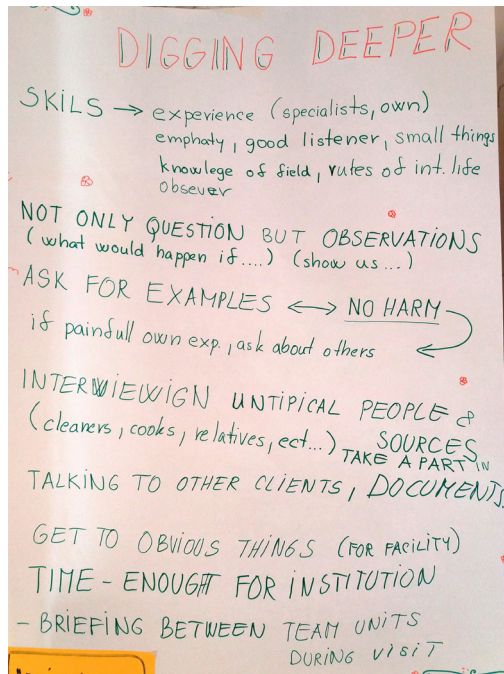 DIGGING DEEPER
SKILS → experience (specialists, own)
emphaty, good listener, small things
knowlege of field, rutes of int. life
obsever
NOT ONLY QUESTION BUT OBSERVATIONS
(what would happen if....) (show us...)
ASK FOR EXAMPLES ↔ NO HARM
if painfull own exp., ask about others
INTERWIEWIGN UNTIPICAL PEOPLE &
(cleaners, cooks, relatives, ect...) SOURCES
TAKE A PART IN
TALKING TO OTHER CLIENTS, DOCUMENTS.
GET TO OBVIOUS THINGS (FOR FACILITY)
TIME - ENOUGHT FOR INSTITUTION
- BRIEFING BETWEEN TEAM UNITS
DURING VISIT